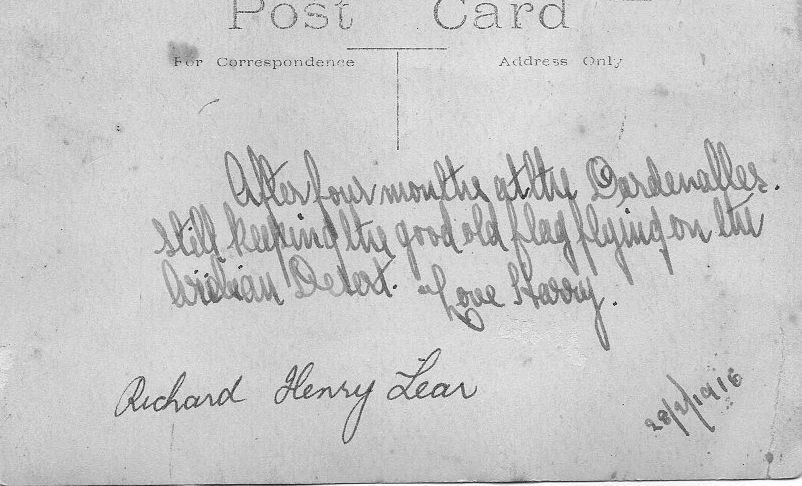 Post Card
For Correspondence Address Only
After four months at the Dardenalles.
Still keeping the good old flag flying on the
Aribian Desert. Love Harry.
Richard Henry Lear
28/2/1916